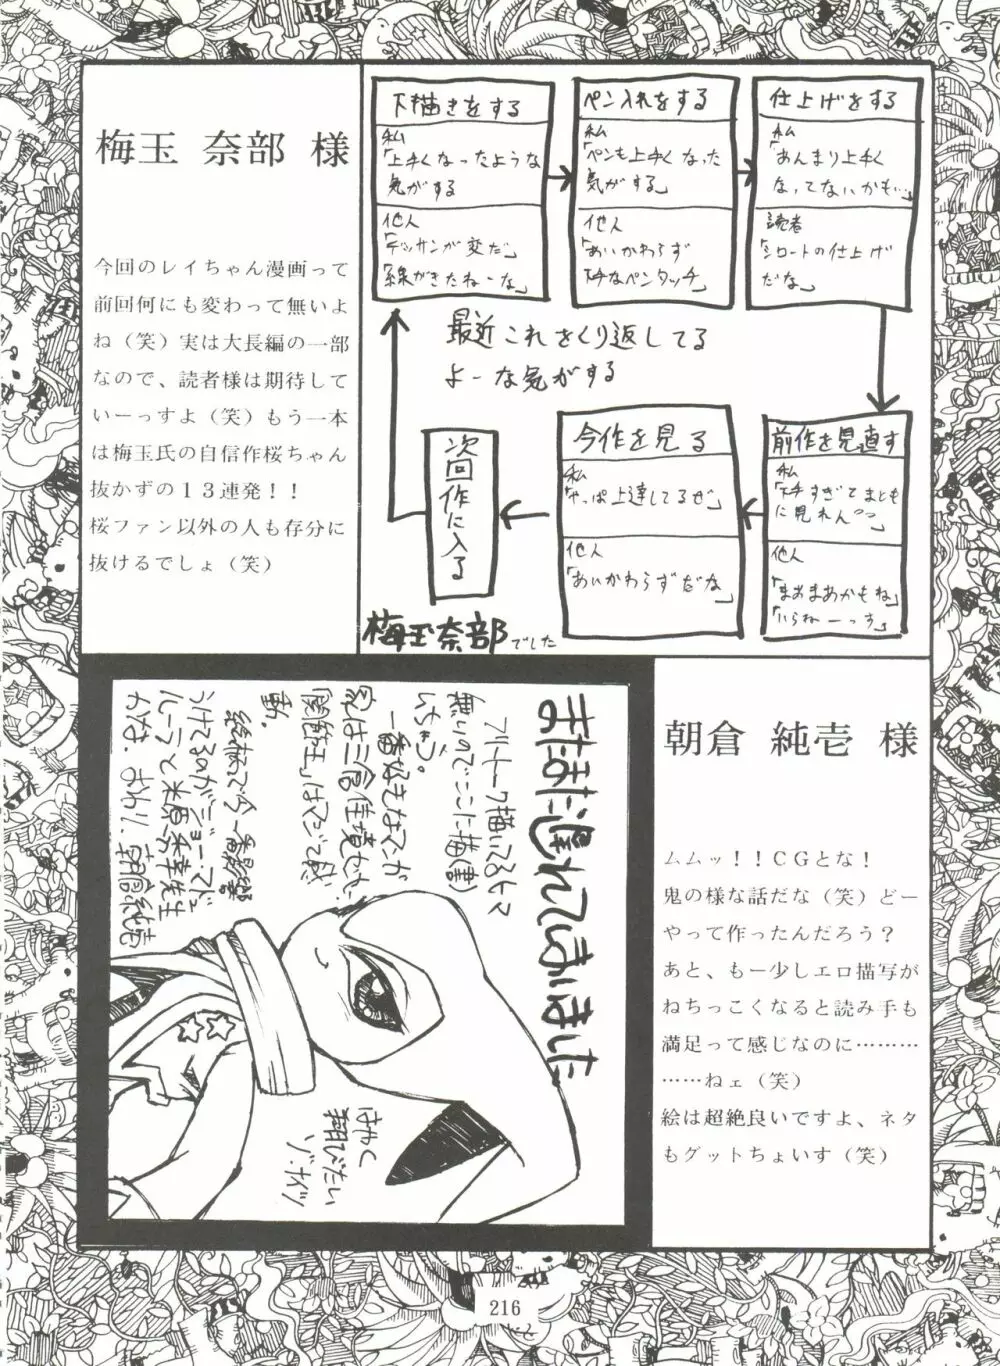 梅玉 奈部 様
今回のレイちゃん漫画って
前回何にも変わって無いよ
ね（笑）実は大長編の一部
なので、読者様は期待して
いーっすよ（笑）もう一本
は梅玉氏の自信作桜ちゃん
抜かずの１３連発！！
桜ファン以外の人も存分に
抜けるでしょ（笑）
下描きをする
私
「上手くなったような
気がする
他人
「デッサンが変だ」
「線がきたねーな」
ペン入れをする
私
「ペンも上手くなった
気がする」
他人
「あいかわらず
なペンタッチ」
仕上げをする
私
「あんまり上手く
なってないかも…」
読者
「シロートの仕上げ
だな」
前作を見直す
私
すぎてまとも
に見れん
他人
「まおまあかもね」
「いらねーっす」
今作を見る
私
「やっぱ上達してるぜ」
他人
「あいかわらずだな」
次回作に入る
最近これをくり返してる
よーな気がする
梅玉奈部でした
朝倉 純壱 様
ムムッ！！ＣＧとな！
鬼の様な話だな（笑）どー
やって作ったんだろう？
あと、もー少しエロ描写が
ねちっこくなると読み手も
満足って感じなのに………
……ねェ（笑）
絵は超絶良いですよ、ネタ
もグットちょいす（笑）
またまた遅れてしまいました
フリートーク描いてるヒマ
無いのでここに描(書)
いちゃう。
一番好きなマンガ
「闘将王」はマジで感
動。
かな。おわり。朝倉純壱
はやく
翔びたい
216